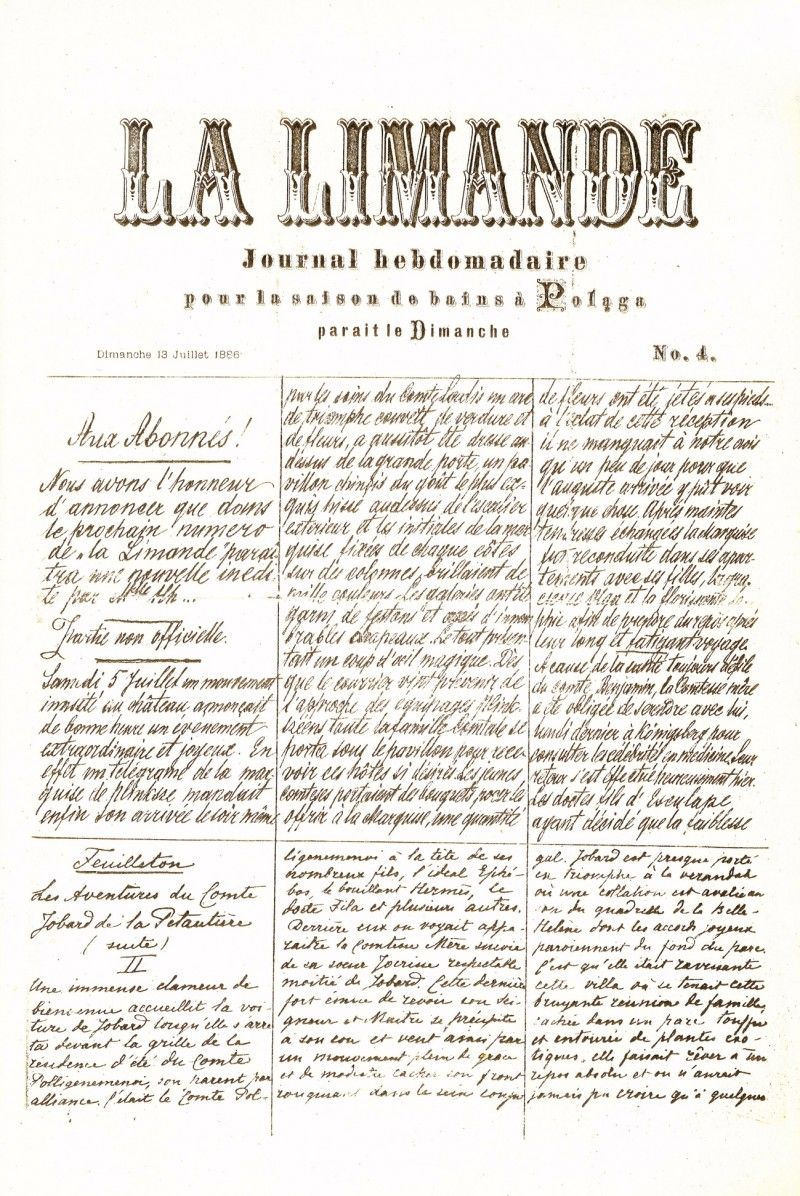 LA LIMANDE
Journal hebdomadaire
pour la saison de bains à Poląga
parait le Dimanche
Dimanche 13 Juillet 1886
No. 4.
Aux Abonnés!
Nous avons l'honneur
d'annoncer que dans
le prochain numero
de „la Limande parai
tra une nouvelle inedi
te par Mlle
Partie non officielle.
Samedi 5 Juillet un mouvement
inusité au château annonçait
de bonne heure un évenement
extraordinaire et joyeux. En
effet un télégrame de la mar
quise de mandait
enfin son arrivée le soir même
par les soins du Comte un arc
de triomphe couvert de verdure et
de fleurs, a aussitôt été dressé au
dessus de la grande porte, un pa
villon chinois du goût le plus ex-
quis hissé au dessus de l'escalier
exterieur et les initiales de la mar
quise fixées de chaque côtés
sur des colonnes, brillaient de
mille couleurs. Les galeries ont été
garni de festons et ornés d'innom
brables drapeaux. Le tout présen
tait un coup d'œil magique. Dès
que le courrier vint prevenir de
l'approche des equipages
toute la famille Comtale se
porta sous le pavillon pour rece
voir ces hôtes si désirés. Les jeunes
comtesses portaient des bouquets pour les
offrir à la Marquise, une quantité
de fleurs ont été jetés a ses pieds
à l'éclat de cette réception
il ne manquait à notre avis
qu'un peu de jour pour que
l'auguste arrivée y pût voir
quelque chose. Après maintes
tendresses echangés la marquise
fut reconduite dans ses apar
tements avec ses filles,
Olga et la florissante So-
phie afin de prendre du repos après
leur long et fatigant voyage.
A cause de la santé toujours débile
du comte Benjamin, la Comtesse mère
a été obligée de se rendre avec lui,
lundi dernier à Königsberg pour
consulter les célébrités en medicine. Leur
retour s'est effectué heureusement hier.
Les doctes fils d'Esculape
ayant décidé que la faiblesse
Feuilleton
Les Aventures du Comte
Jobard de la Petaudière
(suite)
II
Une immense clameur de
bienvenue accueillit la voi-
ture de Jobard lorsqu'elle s'arre
ta devant la grille de la
résidence d'été du Comte
Polligenemenoi, son parent par
alliance. C'était le Comte Pol-
ligenemenoi à la tête de ses
nombreux fils, l'idéal Ephé-
bos, le bouillant Hermès, le
docte Fila et plusieurs autres.
Derrière eux on voyait appa-
raitre la Comtesse Mère suivie
de sa soeur Jocrisse respectable
moitié de Jobard. Cette dernière
fort emue de revoir son Sei-
gneur et Maitre se précipite
à son cou et veut ainsi par
un mouvement plein de grace
et de modestie cacher son front
rougissant dans le sein
quel. Jobard est presque porté
en triomphe à la verandah
où une collation est avalée au
son du quadrille de la Belle-
Helène dont les accords joyeux
parviennent du fond du parc.
C'est qu'elle était ravissante
cette villa où se tenait cette
bruyante réunion de famille,
cachée dans un parc touffu
et entourée de plantes exo-
tiques, elle faisait rêver à un
repos absolu et on n'aurait
jamais pu croire qu'à quelques